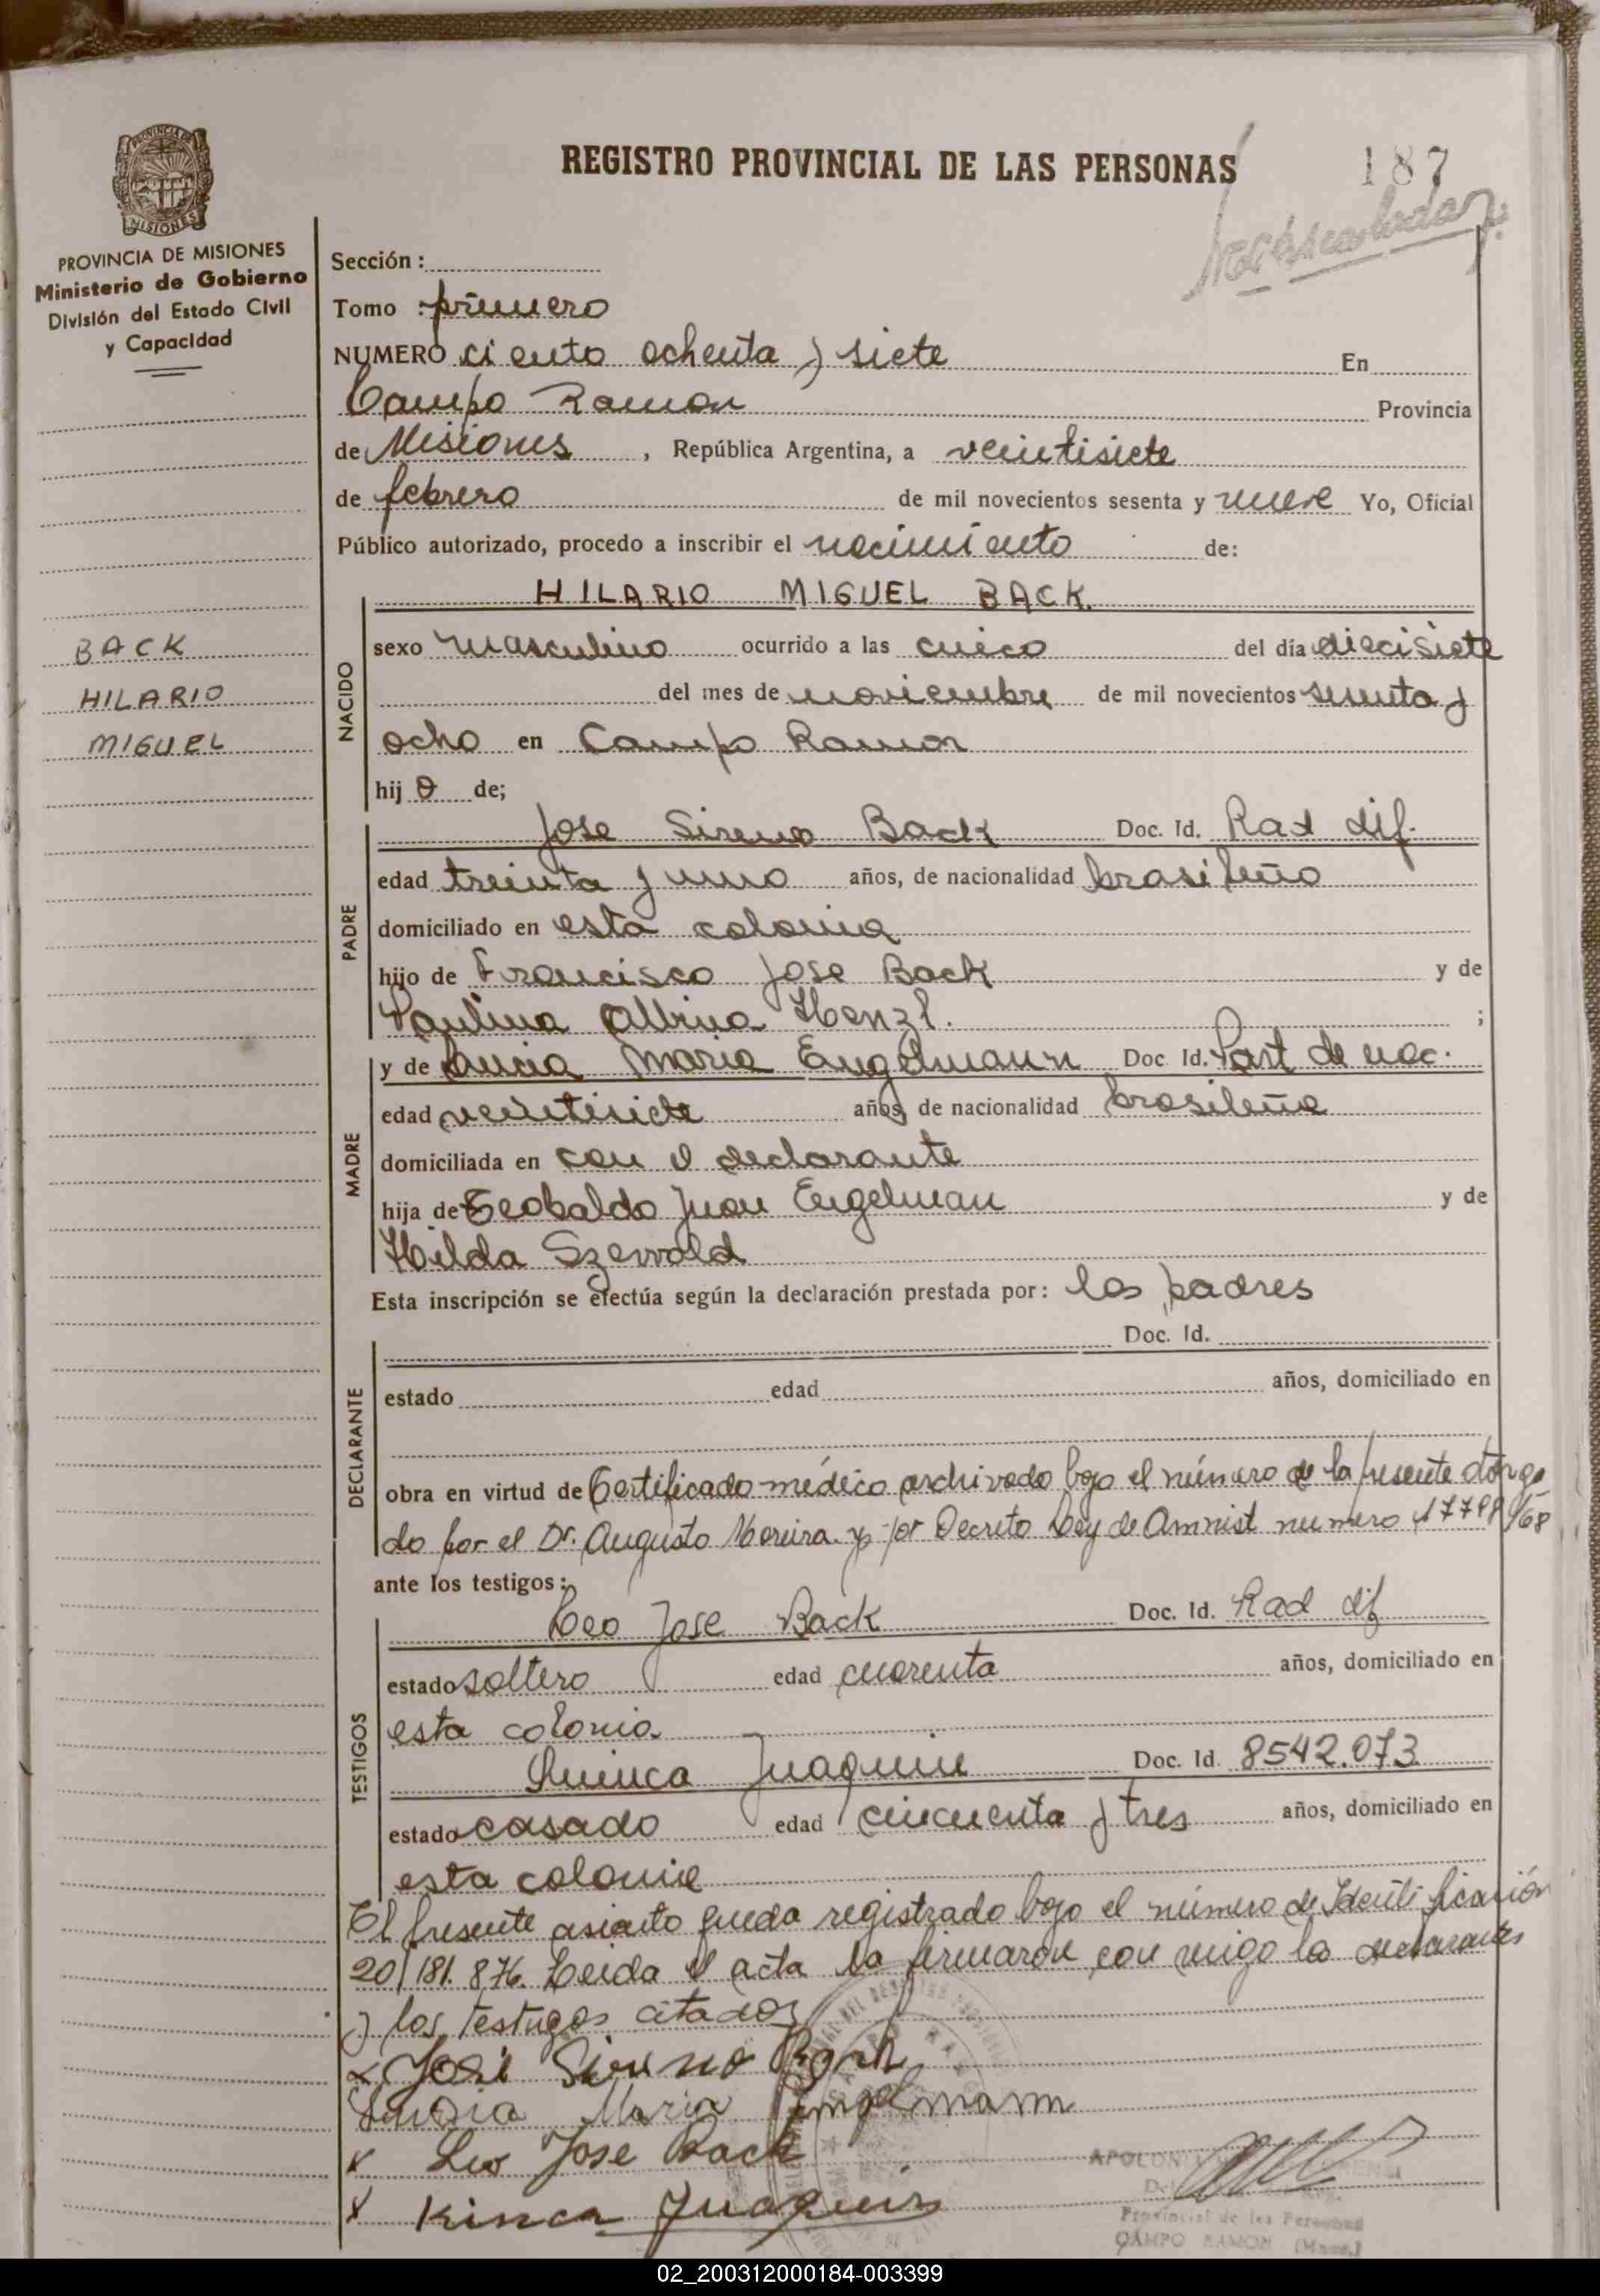 REGISTRO PROVINCIAL DE LAS PERSONAS
187
PROVINCIA DE MISIONES
MISIONES
PROVINCIA DE MISIONES
Ministerio de Gobierno
División del Estado Civil
y Capacidad
BACK
HILARIO
MIGUEL
Sección :
Tomo : primero
NUMERO ciento ochenta y siete En
Campo Ramon Provincia
de Misiones , República Argentina, a veintisiete
de febrero de mil novecientos sesenta y nueve Yo, Oficial
Público autorizado, procedo a inscribir el nacimiento de:
NACIDO
HILARIO MIGUEL BACK.
sexo masculino ocurrido a las cinco del día diecisiete
del mes de noviembre de mil novecientos sesenta y
ocho en Campo Ramon
hij o de;
PADRE
Jose Sireno Back Doc. Id. Rad dif.
edad treinta y uno años, de nacionalidad brasileño
domiciliado en esta colonia
hijo de Francisco Jose Back y de
Paulina Albina Henzl. ;
MADRE
y de Lucia Maria Engelmann Doc. Id. Part de nac.
edad veintisiete años, de nacionalidad brasileña
domiciliada en con el declarante
hija de Teobaldo Juan Engelman y de
Hilda Szewald
Esta inscripción se efectúa según la declaración prestada por: los padres
DECLARANTE
Doc. Id.
estado edad años, domiciliado en
obra en virtud de Certificado médico archivado bajo el número de la presente otorga
do por el Dr. Augusto Moreira y por Decreto Ley de Amnist numero
ante los testigos:
TESTIGOS
Leo Jose Back Doc. Id. Rad dif
estado soltero edad cuarenta años, domiciliado en
esta colonia
Juaquin Doc. Id. 8542.073
estado casado edad cincuenta y tres años, domiciliado en
esta colonia
El presente asiento queda registrado bajo el número de Identificación
20/181.876. Leida el acta la firmaron con migo los declarantes
y los testigos citados
x José Sireno Back
Lucia Maria Engelmann
x Leo Jose Back
x Kinca Juaquin
Provincial de las Personas
CAMPO RAMON (Mnes.)
02_200312000184-003399